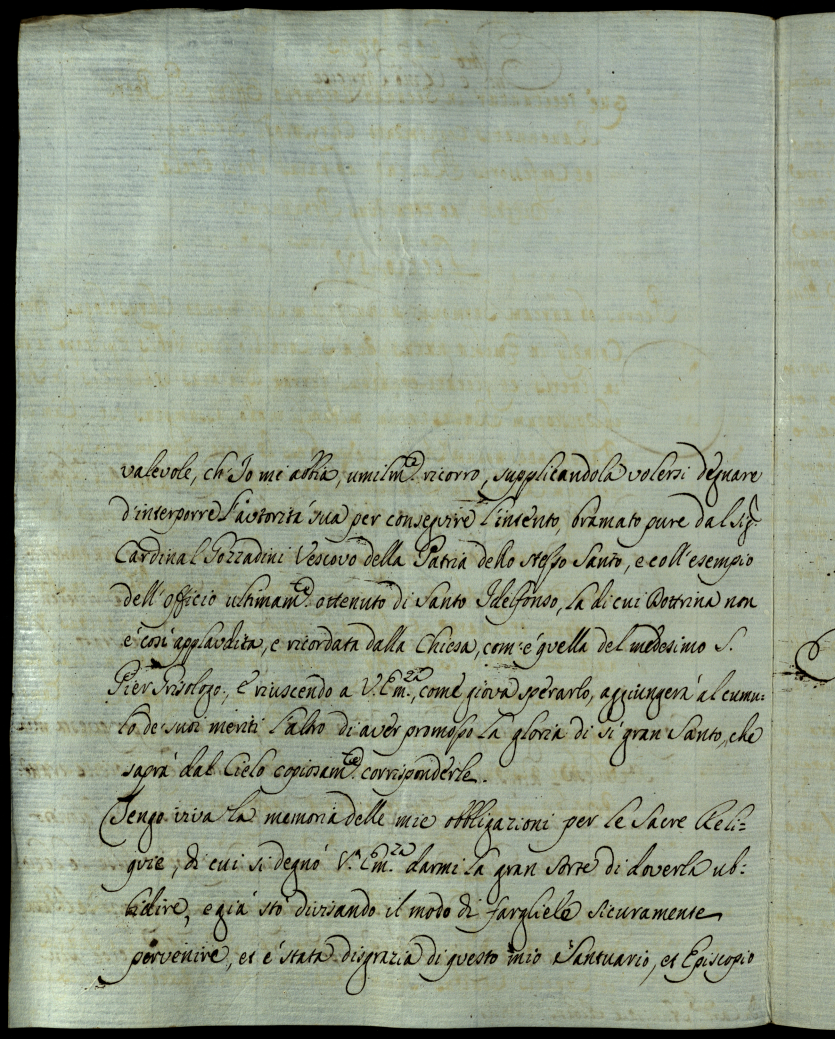 valevole, ch'Io mi abbia, umilm.te ricorro, supplicandola volersi degnare
d'interporre l'autorità sua per conseguire l'intento, bramato pure dal Sig.r
Cardinal Gozzadini Vescovo della Patria dello stesso Santo, e coll'esempio
dell'Officio ultimam.te ottenuto di Santo Idelfonso, la di cui Dottrina non
è così applaudita, e ricordata dalla Chiesa, com'è quella del medesimo S.
Pier Grisologo, E riuscendo a V.Em.za, come giova sperarlo, aggiungerà al cumu:
lo de suoi meriti l'altro di aver promosso la gloria di sì gran Santo, che
saprà dal Cielo copiosam.te corrisponderle.
Tengo viva la memoria delle mie obbligazioni per le Sacre Reli=
quie, di cui si degnò V.Em.za darmi la gran sorte di doverla ub:
bidire, e già stò divisando il modo di fargliele sicuramente
pervenire, et è stata disgrazia di questo mio Santuario, et Episcopio